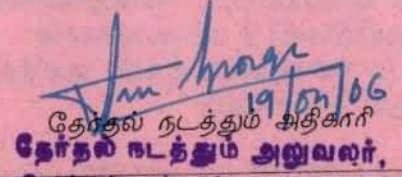 19/04/06
தேர்தல் நடத்தும் அதிகாரி
தேர்தல் நடத்தும் அலுவலர்,